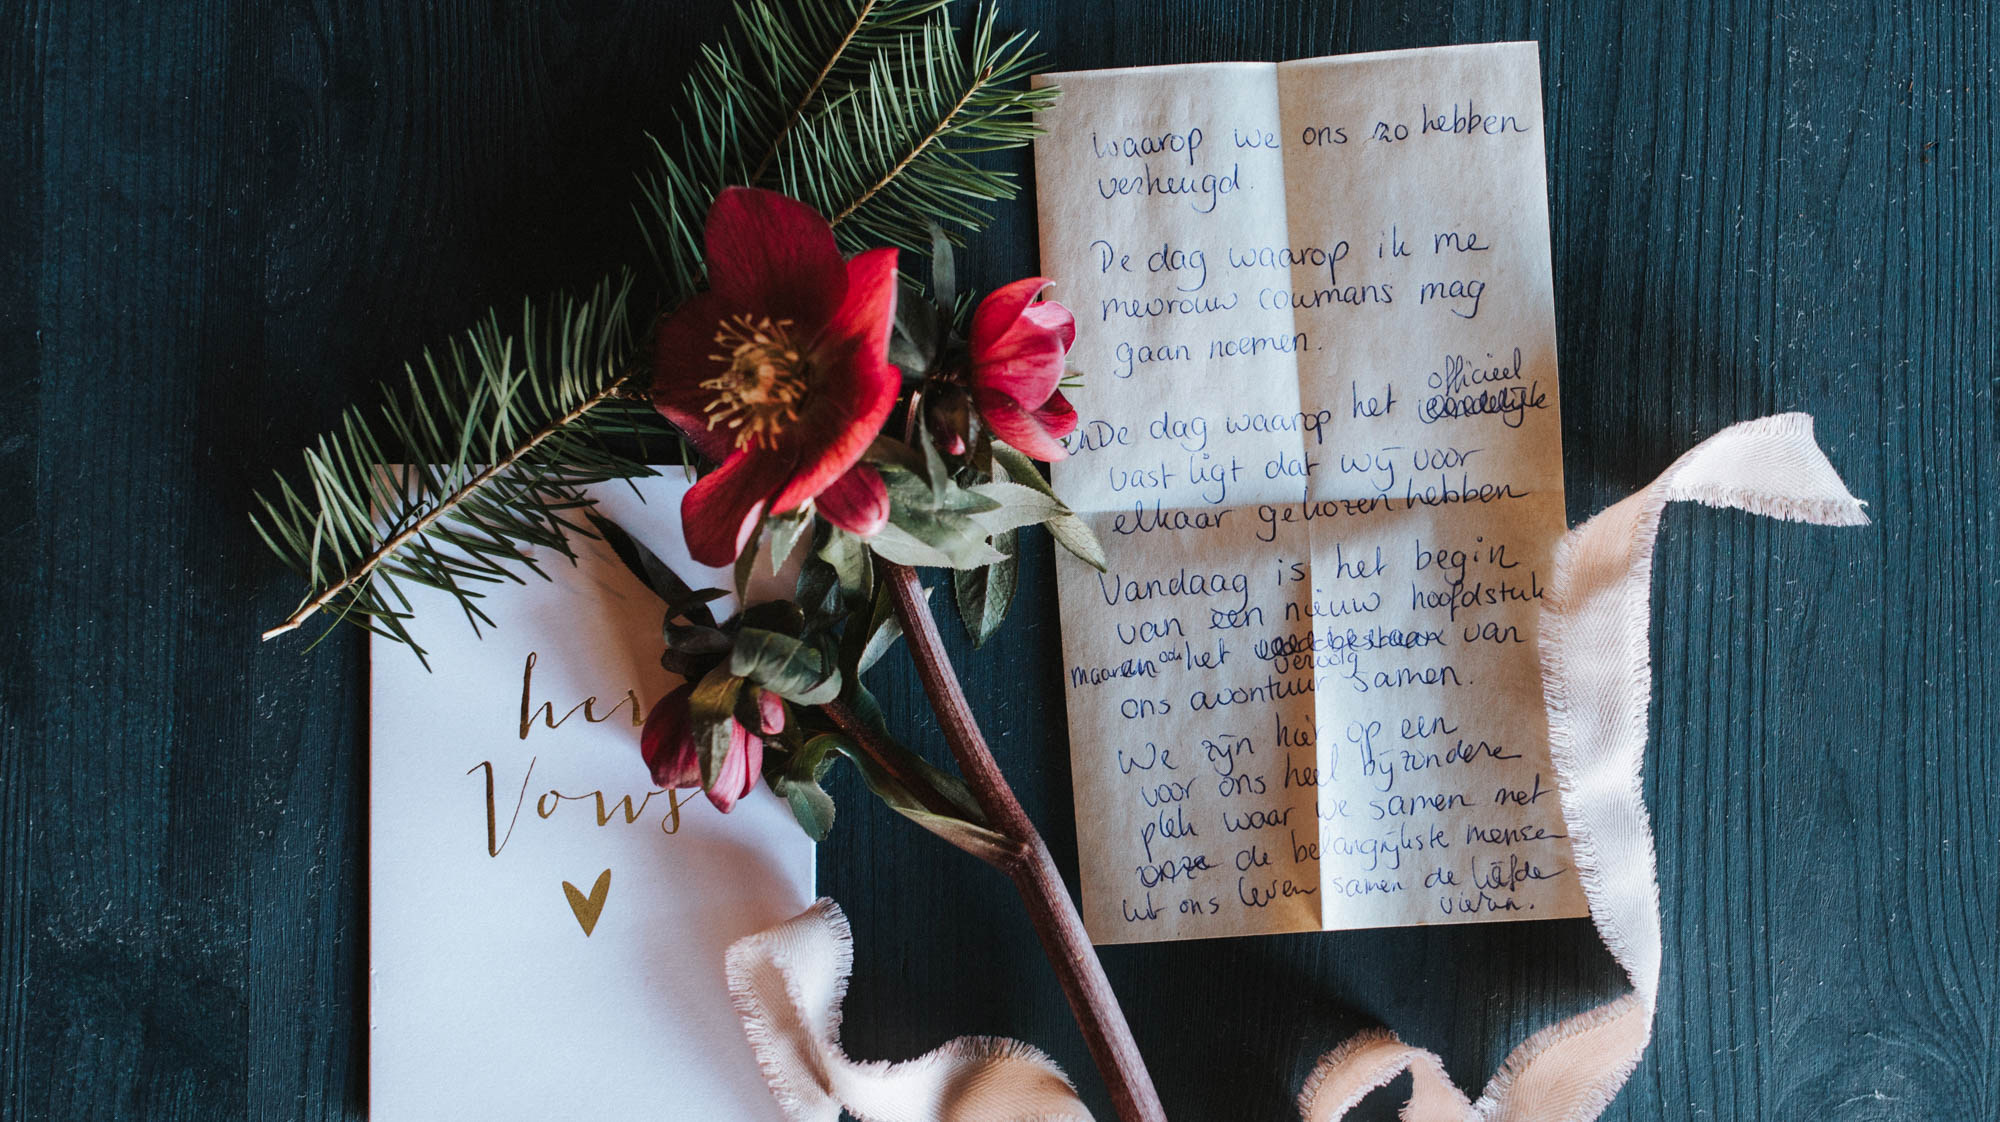 her
Vows
waarop we ons zo hebben
verheugd.
De dag waarop ik me
mevrouw coumans mag
gaan noemen.
officieel
En De dag waarop het
vast ligt dat wij voor
elkaar gekozen hebben
Vandaag is het begin
van een nieuw hoofdstuk
maar ook het van
vervolg
ons avontuur samen.
We zijn hier op een
voor ons heel bijzondere
plek waar we samen met
onze de belangrijkste mensen
uit ons leven samen de liefde
vieren.